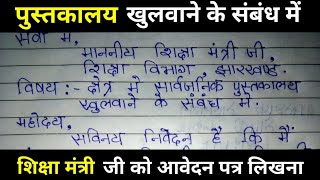 पुस्तकालय खुलवाने के संबंध में
सेवा में,
माननीय शिक्षा मंत्री जी,
शिक्षा विभाग, झारखण्ड.
विषय:- क्षेत्र में सार्वजनिक पुस्तकालय
खुलवाने के संबंध में.
महोदय,
सविनय निवेदन है कि मैं
शिक्षा मंत्री जी को आवेदन पत्र लिखना